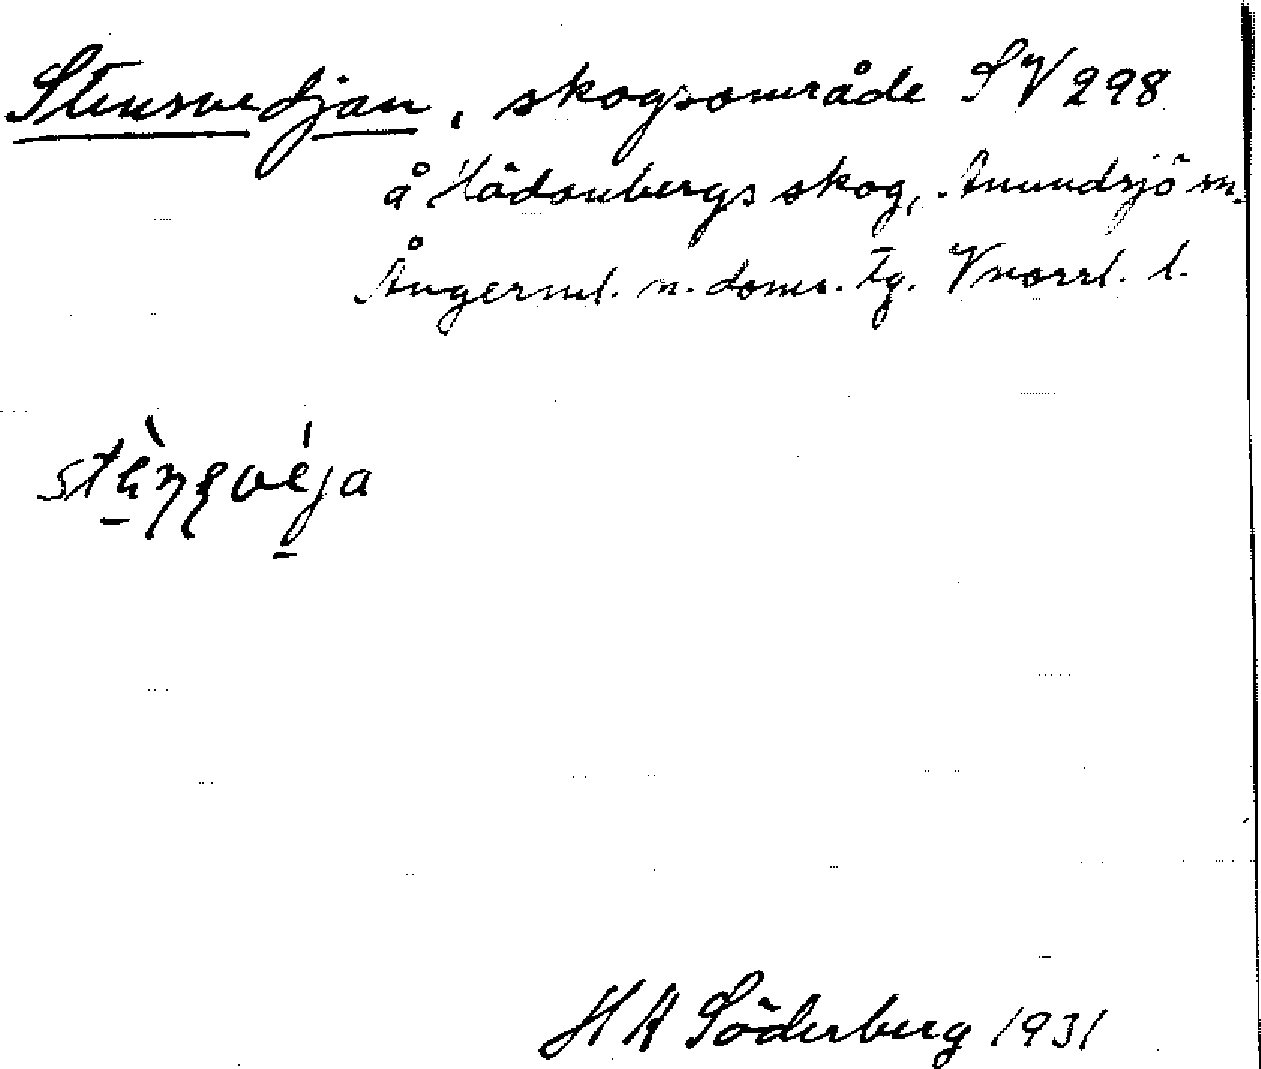 Stensvedjan, skogsområde SV 298
å Hädanbergs skog, Anundsjö sn.
Ångerml. n. doms. tg. Vnorrl. l.
H A Söderberg 1931